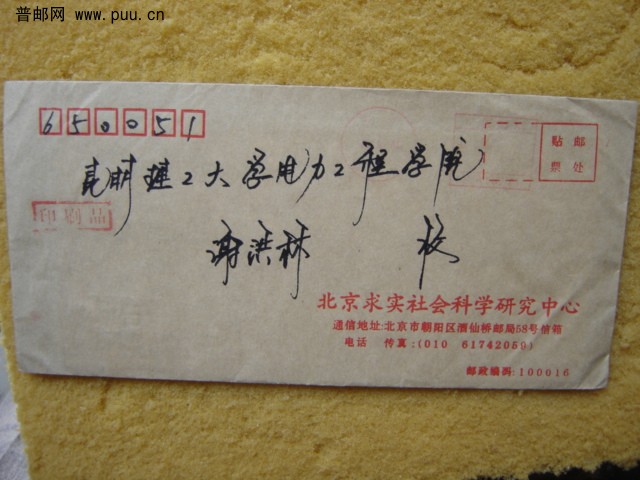 普邮网 www.puu.cn
650051
贴 邮
票 处
昆明理工大学电力工程学院
印刷品
谢洪林 收
北京求实社会科学研究中心
通信地址:北京市朝阳区酒仙桥邮局58号信箱
电话 传真:(010 61742059)
邮政编码:100016